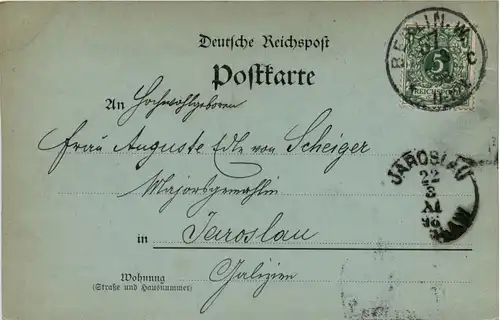 Deutsche Reichspost
Postkarte
BERLIN, W.
5
An Hochwohlgeboren
Frau Auguste Edle von Scheiger
Majorsgemahlin
in Jaroslau
Galizien
Wohnung
(Straße und Hausnummer)
JAROSLAU
22
8
XI
96